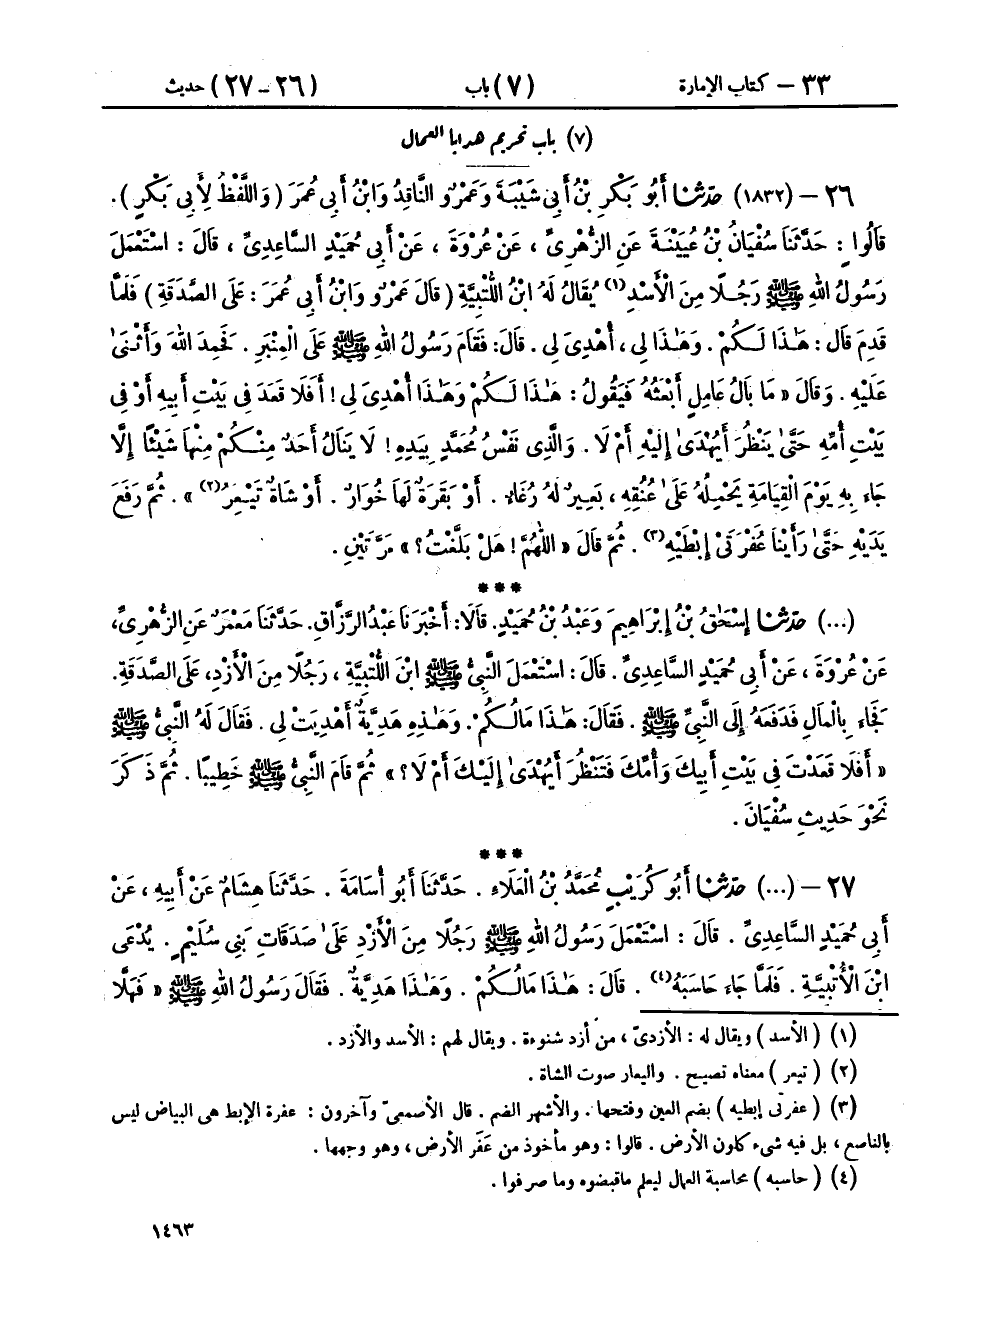 ٣٣ – كتاب الإمارة (٧) باب (٢٦ - ٢٧) حديث
(٧) باب تحريم هدايا العمال
٢٦ – (١٨٣٢) حَدَّثَنَا أَبُو بَكْرِ بْنُ أَبِي شَيْبَةَ وَعَمْرٌو النَّاقِدُ وَابْنُ أَبِي عُمَرَ (وَاللَّفْظُ لِأَبِي بَكْرٍ).
قَالُوا : حَدَّثَنَا سُفْيَانُ بْنُ عُيَيْنَةَ عَنِ الزُّهْرِيِّ ، عَنْ عُرْوَةَ ، عَنْ أَبِي حُمَيْدٍ السَّاعِدِيِّ ، قَالَ : اسْتَعْمَلَ
رَسُولُ اللهِ ﷺ رَجُلًا مِنَ الْأَسْدِ(١) يُقَالُ لَهُ ابْنُ اللُّتْبِيَّةِ (قَالَ عَمْرٌو وَابْنُ أَبِي عُمَرَ : عَلَى الصَّدَقَةِ) فَلَمَّا
قَدِمَ قَالَ : هَٰذَا لَكُمْ . وَهَٰذَا لِي ، أُهْدِيَ لِي . قَالَ: فَقَامَ رَسُولُ اللهِ ﷺ عَلَى الْمِنْبَرِ . فَحَمِدَ اللهَ وَأَثْنَىٰ
عَلَيْهِ . وَقَالَ « مَا بَالُ عَامِلٍ أَبْعَثُهُ فَيَقُولُ : هَٰذَا لَكُمْ وَهَٰذَا أُهْدِيَ لِي ! أَفَلَا قَعَدَ فِي بَيْتِ أَبِيهِ أَوْ فِي
بَيْتِ أُمِّهِ حَتَّىٰ يَنْظُرَ أَيُهْدَىٰ إِلَيْهِ أَمْ لَا . وَالَّذِي نَفْسُ مُحَمَّدٍ بِيَدِهِ ! لَا يَنَالُ أَحَدٌ مِنْكُمْ مِنْهَا شَيْئًا إِلَّا
جَاءَ بِهِ يَوْمَ الْقِيَامَةِ يَحْمِلُهُ عَلَىٰ عُنُقِهِ ، بَعِيرٌ لَهُ رُغَاءٌ . أَوْ بَقَرَةٌ لَهَا خُوَارٌ . أَوْ شَاةٌ تَيْعِرُ(٢) » . ثُمَّ رَفَعَ
يَدَيْهِ حَتَّىٰ رَأَيْنَا عُفْرَتَيْ إِبْطَيْهِ(٣) . ثُمَّ قَالَ « اللَّهُمَّ ! هَلْ بَلَّغْتُ ؟ » مَرَّتَيْنِ .
***
(...) حَدَّثَنَا إِسْحَٰقُ بْنُ إِبْرَاهِيمَ وَعَبْدُ بْنُ حُمَيْدٍ. قَالَا: أَخْبَرَنَا عَبْدُ الرَّزَّاقِ. حَدَّثَنَا مَعْمَرٌ عَنِ الزُّهْرِيِّ،
عَنْ عُرْوَةَ ، عَنْ أَبِي حُمَيْدٍ السَّاعِدِيِّ . قَالَ : اسْتَعْمَلَ النَّبِيُّ ﷺ ابْنَ اللُّتْبِيَّةِ ، رَجُلًا مِنَ الْأَزْدِ، عَلَى الصَّدَقَةِ.
فَجَاءَ بِالْمَالِ فَدَفَعَهُ إِلَى النَّبِيِّ ﷺ . فَقَالَ: هَٰذَا مَالُكُمْ. وَهَٰذِهِ هَدِيَّةٌ أُهْدِيَتْ لِي . فَقَالَ لَهُ النَّبِيُّ ﷺ
« أَفَلَا قَعَدْتَ فِي بَيْتِ أَبِيكَ وَأُمِّكَ فَتَنْظُرَ أَيُهْدَىٰ إِلَيْكَ أَمْ لَا ؟ » ثُمَّ قَامَ النَّبِيُّ ﷺ خَطِيبًا . ثُمَّ ذَكَرَ
نَحْوَ حَدِيثِ سُفْيَانَ .
***
٢٧ – (...) حَدَّثَنَا أَبُو كُرَيْبٍ مُحَمَّدُ بْنُ الْعَلَاءِ . حَدَّثَنَا أَبُو أُسَامَةَ . حَدَّثَنَا هِشَامٌ عَنْ أَبِيهِ ، عَنْ
أَبِي حُمَيْدٍ السَّاعِدِيِّ . قَالَ : اسْتَعْمَلَ رَسُولُ اللهِ ﷺ رَجُلًا مِنَ الْأَزْدِ عَلَىٰ صَدَقَاتِ بَنِي سُلَيْمٍ . يُدْعَى
ابْنَ الْأُتْبِيَّةِ . فَلَمَّا جَاءَ حَاسَبَهُ(٤) . قَالَ : هَٰذَا مَالُكُمْ . وَهَٰذَا هَدِيَّةٌ . فَقَالَ رَسُولُ اللهِ ﷺ « فَهَلَّا
(١) (الأسد) ويقال له : الأزدىّ ، من أزد شنوءة . ويقال لهم : الأسد والأزد .
(٢) (تيعر) معناه تصيح . واليعار صوت الشاة .
(٣) (عفرتى إبطيه) بضم العين وفتحها . والأشهر الضم . قال الأصمعىّ وآخرون : عفرة الإبط هى البياض ليس
بالناصع ، بل فيه شىء كلون الأرض . قالوا : وهو مأخوذ من عَفَر الأرض ، وهو وجهها .
(٤) (حاسبه) محاسبة العمال ليعلم ماقبضوه وما صرفوا .
١٤٦٣